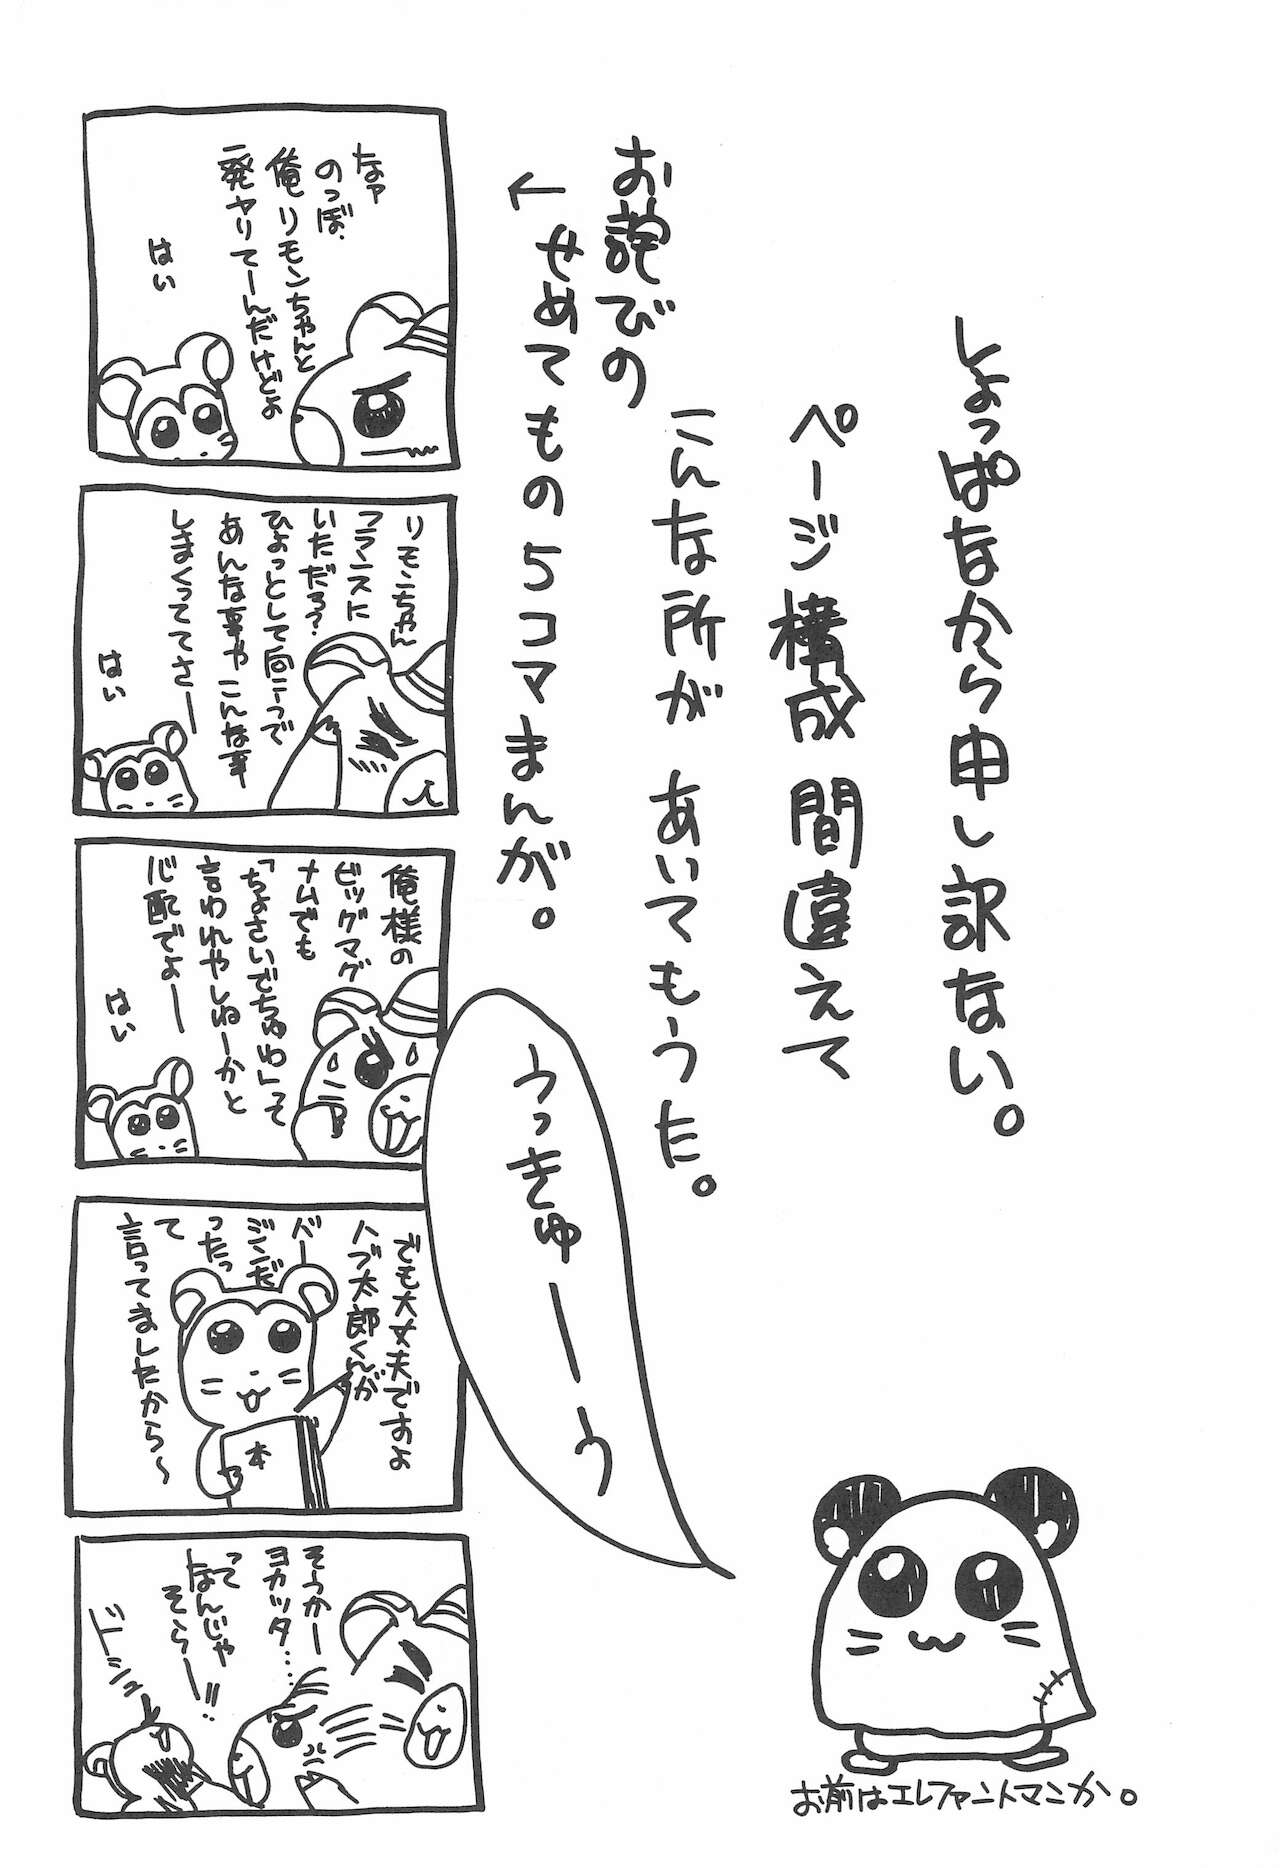 しょっぱなから申し訳ない。
ページ構成間違えて
こんな所が あいてもうた。
お詫びの
せめてもの5コマまんが。
←
うっきゅーーう
お前はエレファントマンか。
なァ
のっぽ、
俺リモンちゃんと
一発ヤりてーんだけどょ
はい
リモンちゃん
フランスに
いただろ?
ひょっとして向こうで
あんな事やこんな事
しまくっててさー
はい
俺様の
ビッグマグ
ナムでも
「ちょさいでちゅわ」って
言われやしねーかと
心配でよー
はい
でも大丈夫ですよ
ハブ太郎くんが
バー
ジンだ
ったっ
て
言ってましたから~
本
そうかー
ヨカッタ……
って
なんじゃ
そらー!!
ドシュ